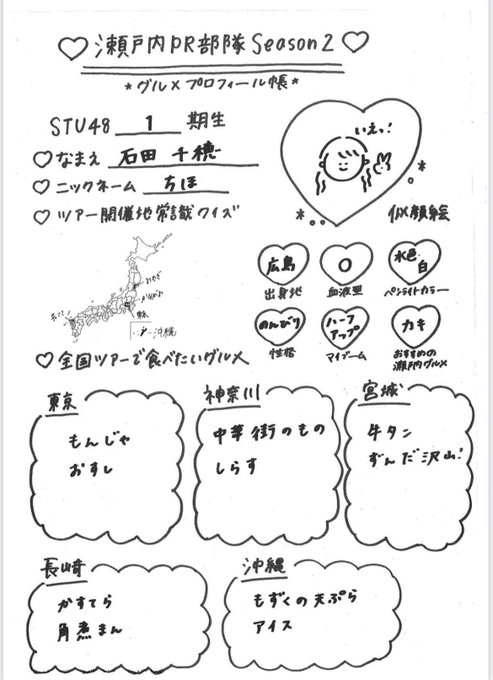 ♡ 瀬戸内PR部隊 Season2 ♡
*グルメプロフィール帳*
STU48 1 期生
♡なまえ 石田 千穂
♡ニックネーム ちほ
♡ツアー開催地常識クイズ
いえっ!
似顔絵
みやぎ
かながわ
東京
ながさき
沖縄
広島
出身地
O
血液型
水色
白
ペンライトカラー
のんびり
性格
ハーフアップ
マイブーム
カキ
おすすめの瀬戸内グルメ
♡全国ツアーで食べたいグルメ
東京
もんじゃ
おすし
神奈川
中華街のもの
しらす
宮城
牛タン
ずんだ沢山!
長崎
かすてら
角煮まん
沖縄
もずくの天ぷら
アイス